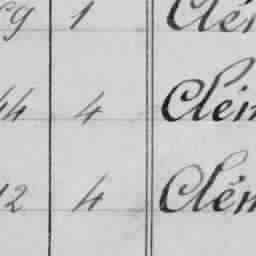 69 1 Clé
44 4 Clém
12 4 Clém